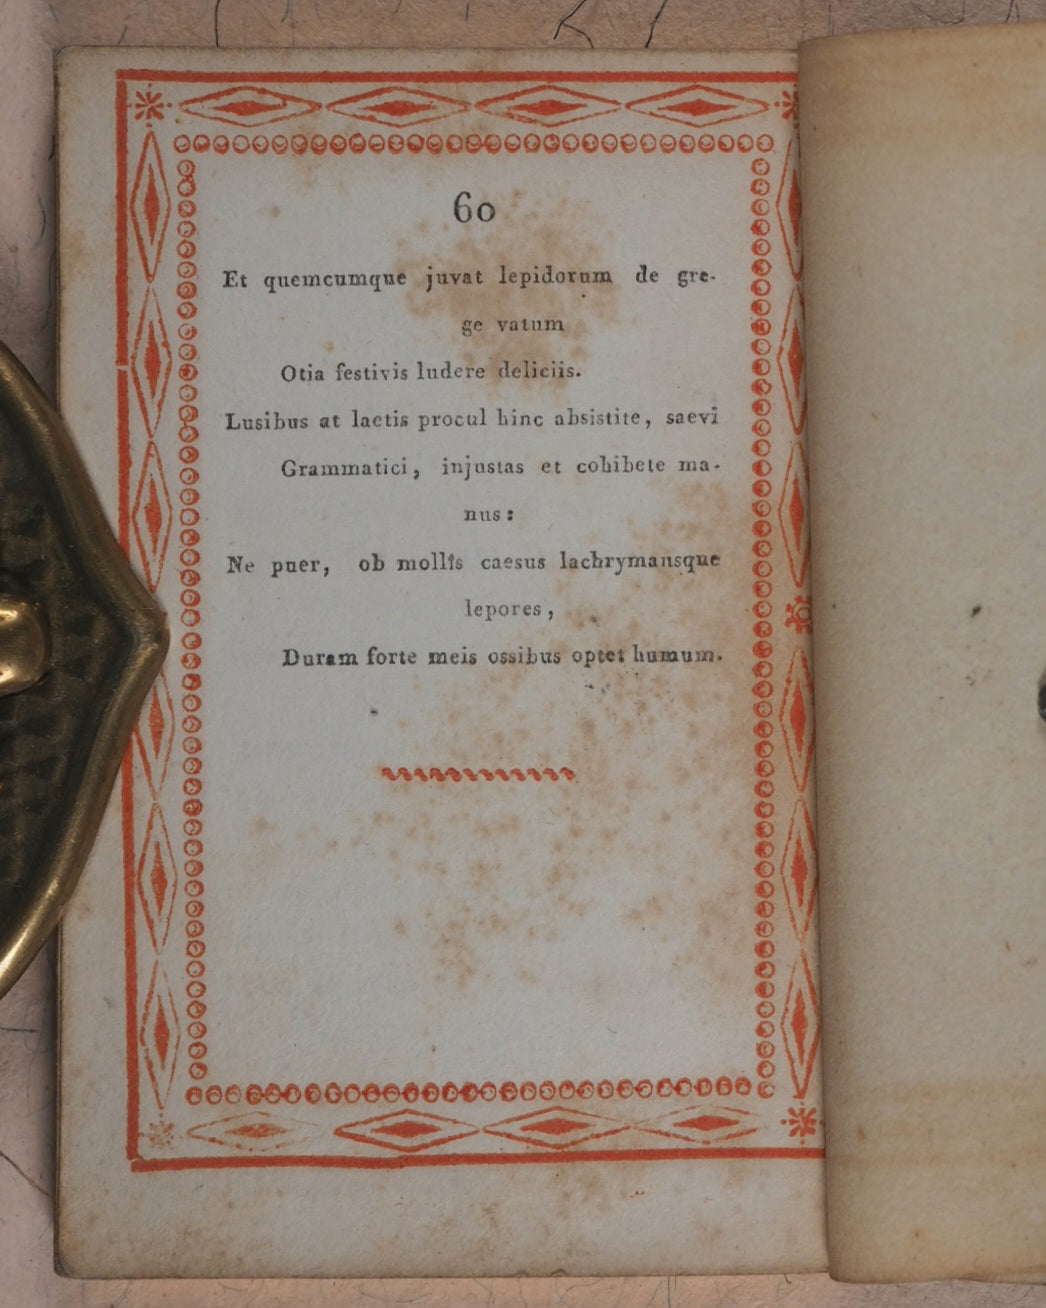 60
Et quemcumque juvat lepidorum de gre-
ge vatum
Otia festivis ludere deliciis.
Lusibus at laetis procul hinc absistite, saevi
Grammatici, injustas et cohibete ma-
nus:
Ne puer, ob mollîs caesus lachrymansque
lepores,
Duram forte meis ossibus optet humum.